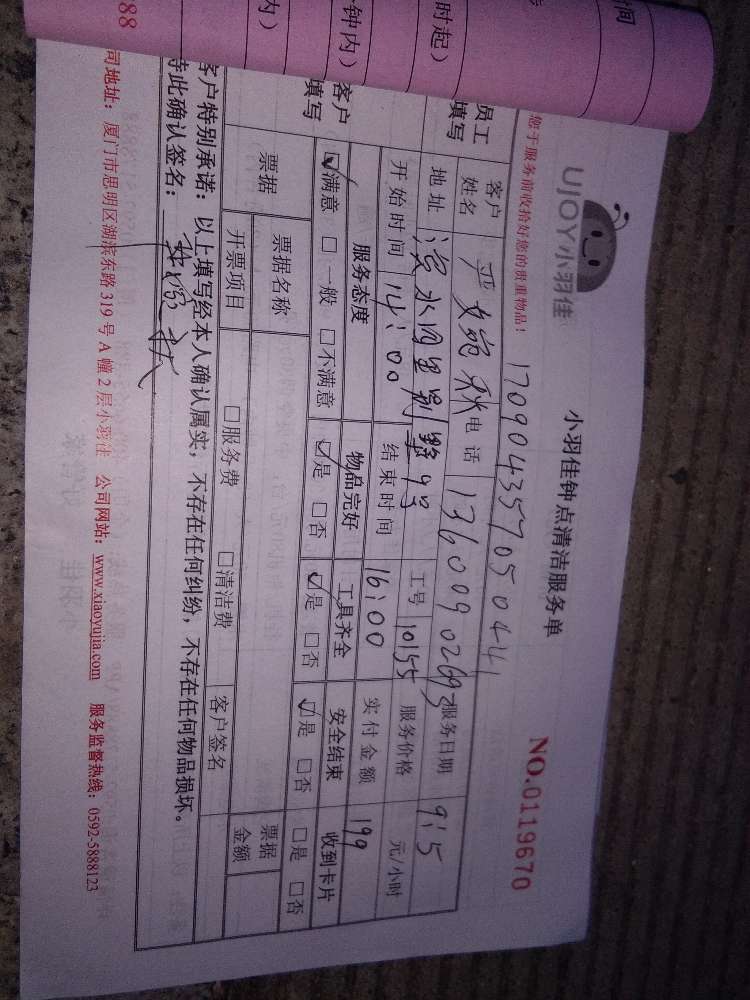 UJOY小羽佳
小羽佳钟点清洁服务单
NO.0119670
您于服务前收拾好您的贵重物品！
17090435705044
员工填写
客户姓名 严婉秋 电话 服务日期 9.5
地址 工号 10155 服务价格 元/小时
开始时间 14:00 结束时间 16:00 实付金额 199
客户填写
服务态度 物品完好 工具齐全 安全结束 收到卡片
☑满意 □一般 □不满意 ☑是 □否 ☑是 □否 ☑是 □否 □是 □否
票据 票据名称 票据金额
开票项目 □服务费 □清洁费 客户签名
客户特别承诺：以上填写经本人确认属实，不存在任何纠纷，不存在任何物品损坏。
特此确认签名：
司地址：厦门市思明区湖滨东路319号A幢2层小羽佳 公司网站：www.xiaoyujia.com 服务监督热线：0592-5888123
时间
时起）
钟内）
内）
88